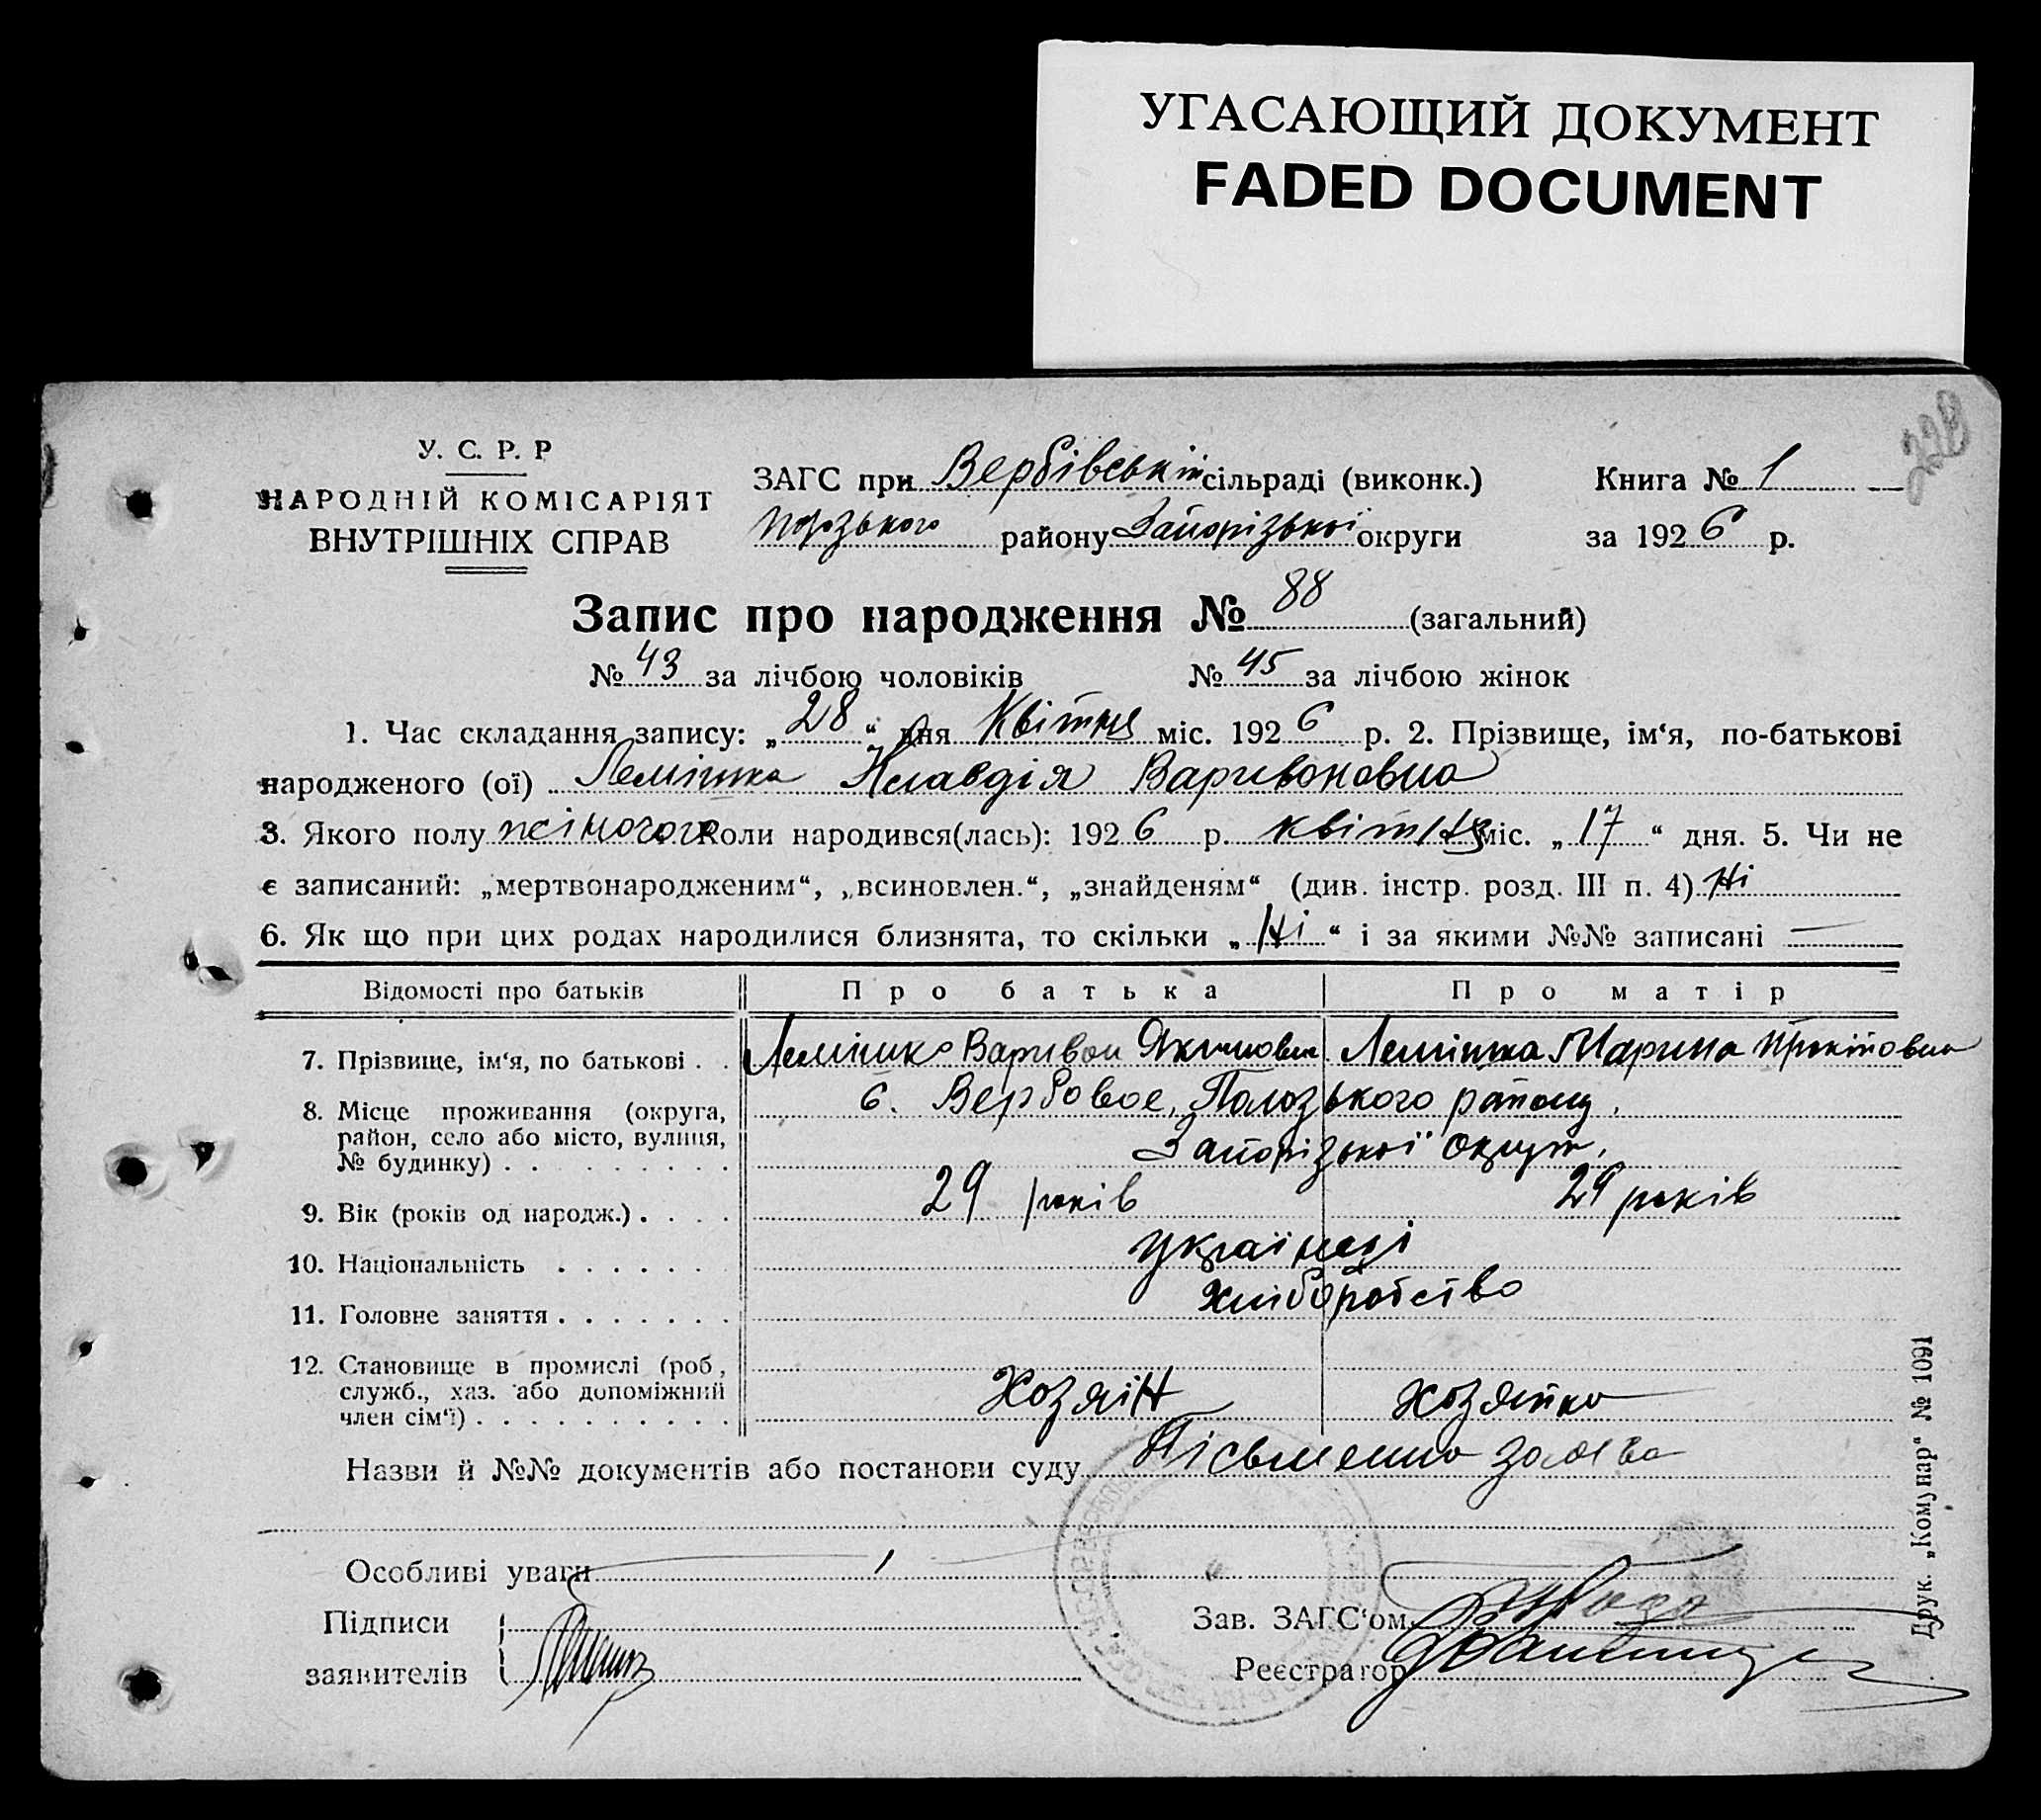 УГАСАЮЩИЙ ДОКУМЕНТ
FADED DOCUMENT
У. С. Р. Р
НАРОДНІЙ КОМІСАРІЯТ
ВНУТРІШНІХ СПРАВ
ЗАГС при Вербівській сільраді (виконк.)
району Запорізької округи
Книга № 1
за 1926 р.
Запис про народження № 88 (загальний)
№ 43 за лічбою чоловіків № 45 за лічбою жінок
1. Час складання запису: „28“ дня Квітня міс. 1926 р. 2. Прізвище, ім‘я, по-батькові
народженого (ої) Лемішка Клавдія Варивоновна
3. Якого полу жіночого Коли народився(лась): 1926 р. квітня міс. „17“ дня. 5. Чи не
є записаний: „мертвонародженим“, „всиновлен.“, „знайденям“ (див. інстр. розд. III п. 4) Ні
6. Як що при цих родах народилися близнята, то скільки „Ні“ і за якими №№ записані —
Відомості про батьків Про батька Про матір
7. Прізвище, ім‘я, по батькові . . Лемішко Варивон Якимович Лемішка Марина
8. Місце проживання (округа, с. Вербовое, Пологзького району,
район, село або місто, вулиця,
№ будинку) . . . . . . . . . Запорізької округи,
9. Вік (років од народж.) . . . . 29 років 29 років
10. Національність . . . . . . Українці
11. Головне заняття . . . . . . . хліборобство
12. Становище в промислі (роб,
служб., хаз. або допоміжний
член сім‘ї) . . . . . . . . . . . Хозяїн хозяйка
Назви й №№ документів або постанови суду Пісьменно заява
Особливі уваги
Підписи
заявителів
Зав. ЗАГС‘ом
Реєстратор
Друк. „Комунар“ № 1091